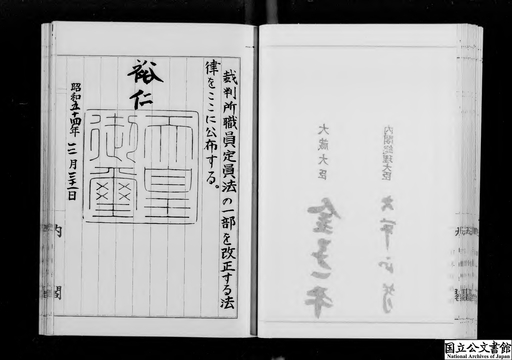 裁判所職員定員法の一部を改正する法
律をここに公布する。
裕仁
天皇
御璽
昭和五十四年三月三十一日
内閣
内閣総理大臣
大蔵大臣
国立公文書館
National Archives of Japan